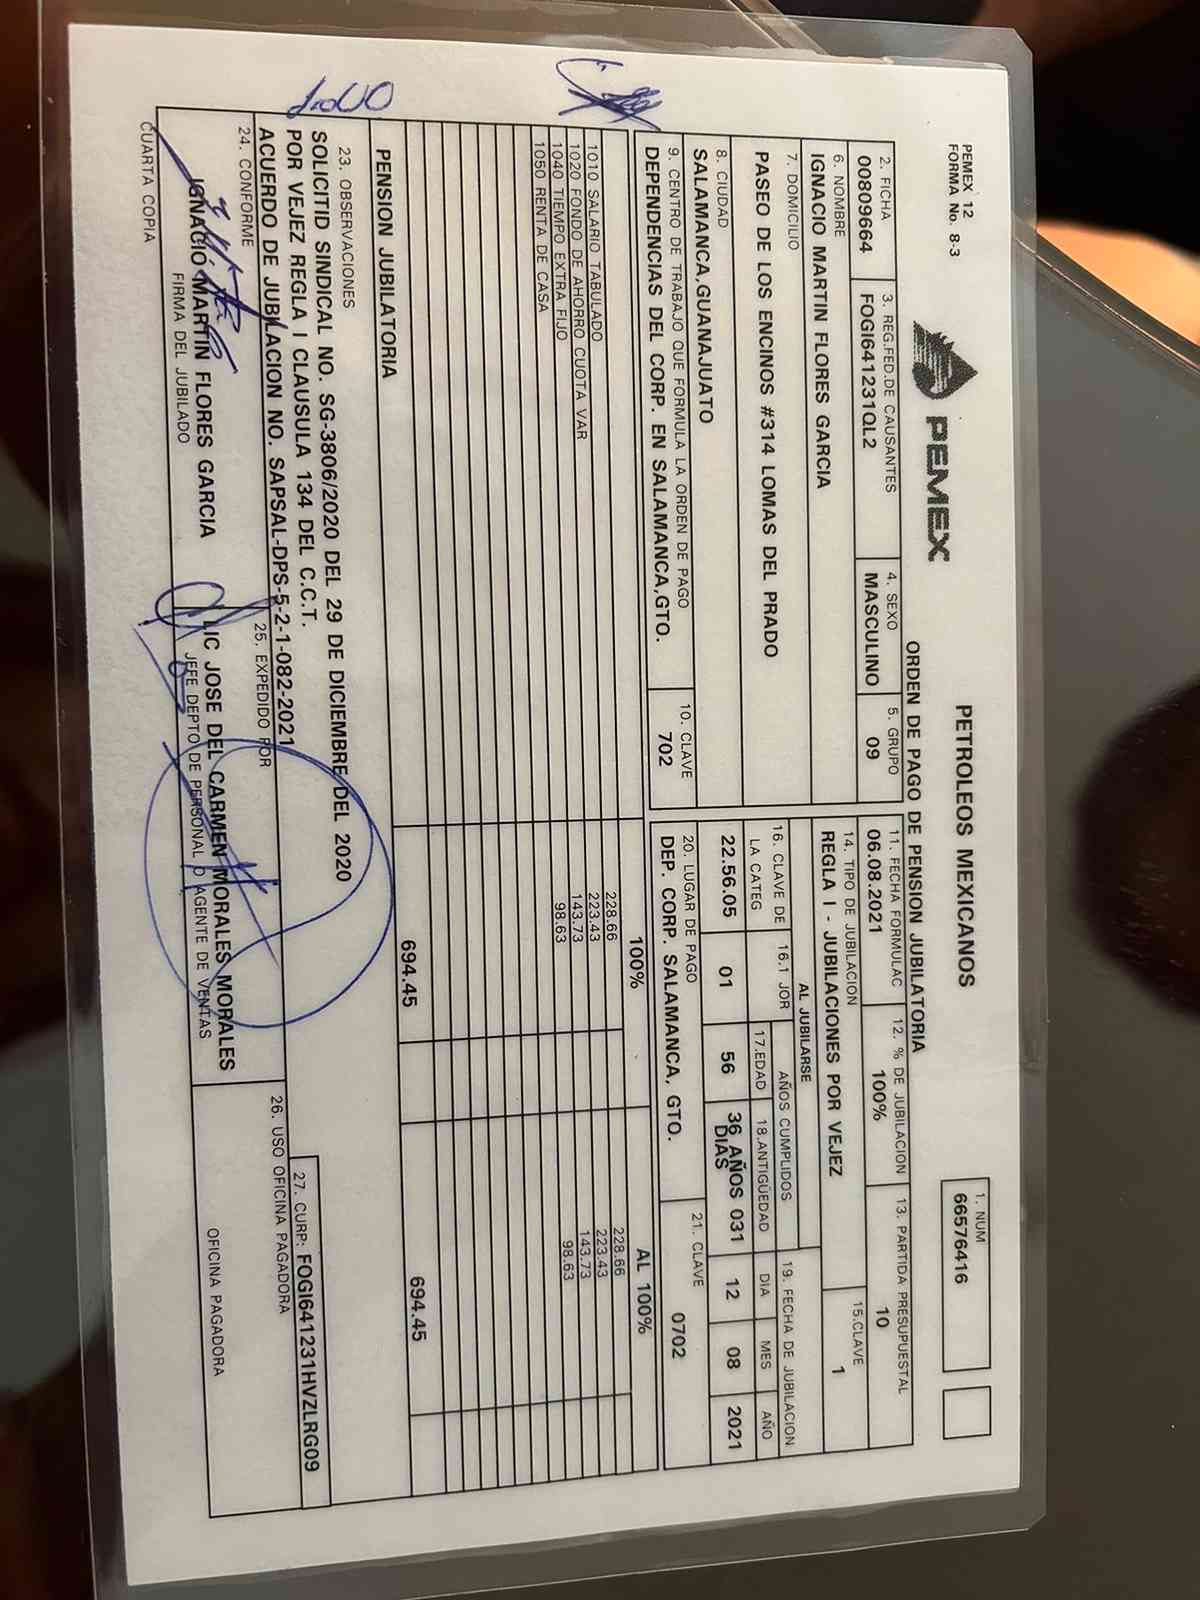 PEMEX 12
FORMA No. 8-3
PEMEX
PETROLEOS MEXICANOS
ORDEN DE PAGO DE PENSION JUBILATORIA
1. NUM
66576416
2. FICHA
00809664
3. REG.FED.DE CAUSANTES
FOGI641231QL2
4. SEXO
MASCULINO
5. GRUPO
09
6. NOMBRE
IGNACIO MARTIN FLORES GARCIA
7. DOMICILIO
PASEO DE LOS ENCINOS #314 LOMAS DEL PRADO
8. CIUDAD
SALAMANCA,GUANAJUATO
9. CENTRO DE TRABAJO QUE FORMULA LA ORDEN DE PAGO
DEPENDENCIAS DEL CORP. EN SALAMANCA,GTO.
10. CLAVE
702
11. FECHA FORMULAC
06.08.2021
12. % DE JUBILACION
100%
13. PARTIDA PRESUPUESTAL
10
14. TIPO DE JUBILACION
REGLA I - JUBILACIONES POR VEJEZ
15.CLAVE
1
AL JUBILARSE
16. CLAVE DE
LA CATEG
22.56.05
16.1 JOR
01
AÑOS CUMPLIDOS
17.EDAD
56
18.ANTIGÜEDAD
36 AÑOS 031
DIAS
19. FECHA DE JUBILACION
DIA MES AÑO
12 08 2021
20. LUGAR DE PAGO
DEP. CORP. SALAMANCA, GTO.
21. CLAVE
0702
100% AL 100%
1010 SALARIO TABULADO 228.66 228.66
1020 FONDO DE AHORRO CUOTA VAR 223.43 223.43
1040 TIEMPO EXTRA FIJO 143.73 143.73
1050 RENTA DE CASA 98.63 98.63
PENSION JUBILATORIA 694.45 694.45
23. OBSERVACIONES
SOLICITID SINDICAL NO. SG-3806/2020 DEL 29 DE DICIEMBRE DEL 2020
POR VEJEZ REGLA I CLAUSULA 134 DEL C.C.T.
ACUERDO DE JUBILACION NO. SAPSAL-DPS-5-2-1-082-2021
27. CURP: FOGI641231HVZLRG09
24. CONFORME
IGNACIO MARTIN FLORES GARCIA
FIRMA DEL JUBILADO
25. EXPEDIDO POR
LIC JOSE DEL CARMEN MORALES MORALES
JEFE DEPTO DE PERSONAL O AGENTE DE VENTAS
26. USO OFICINA PAGADORA
OFICINA PAGADORA
CUARTA COPIA